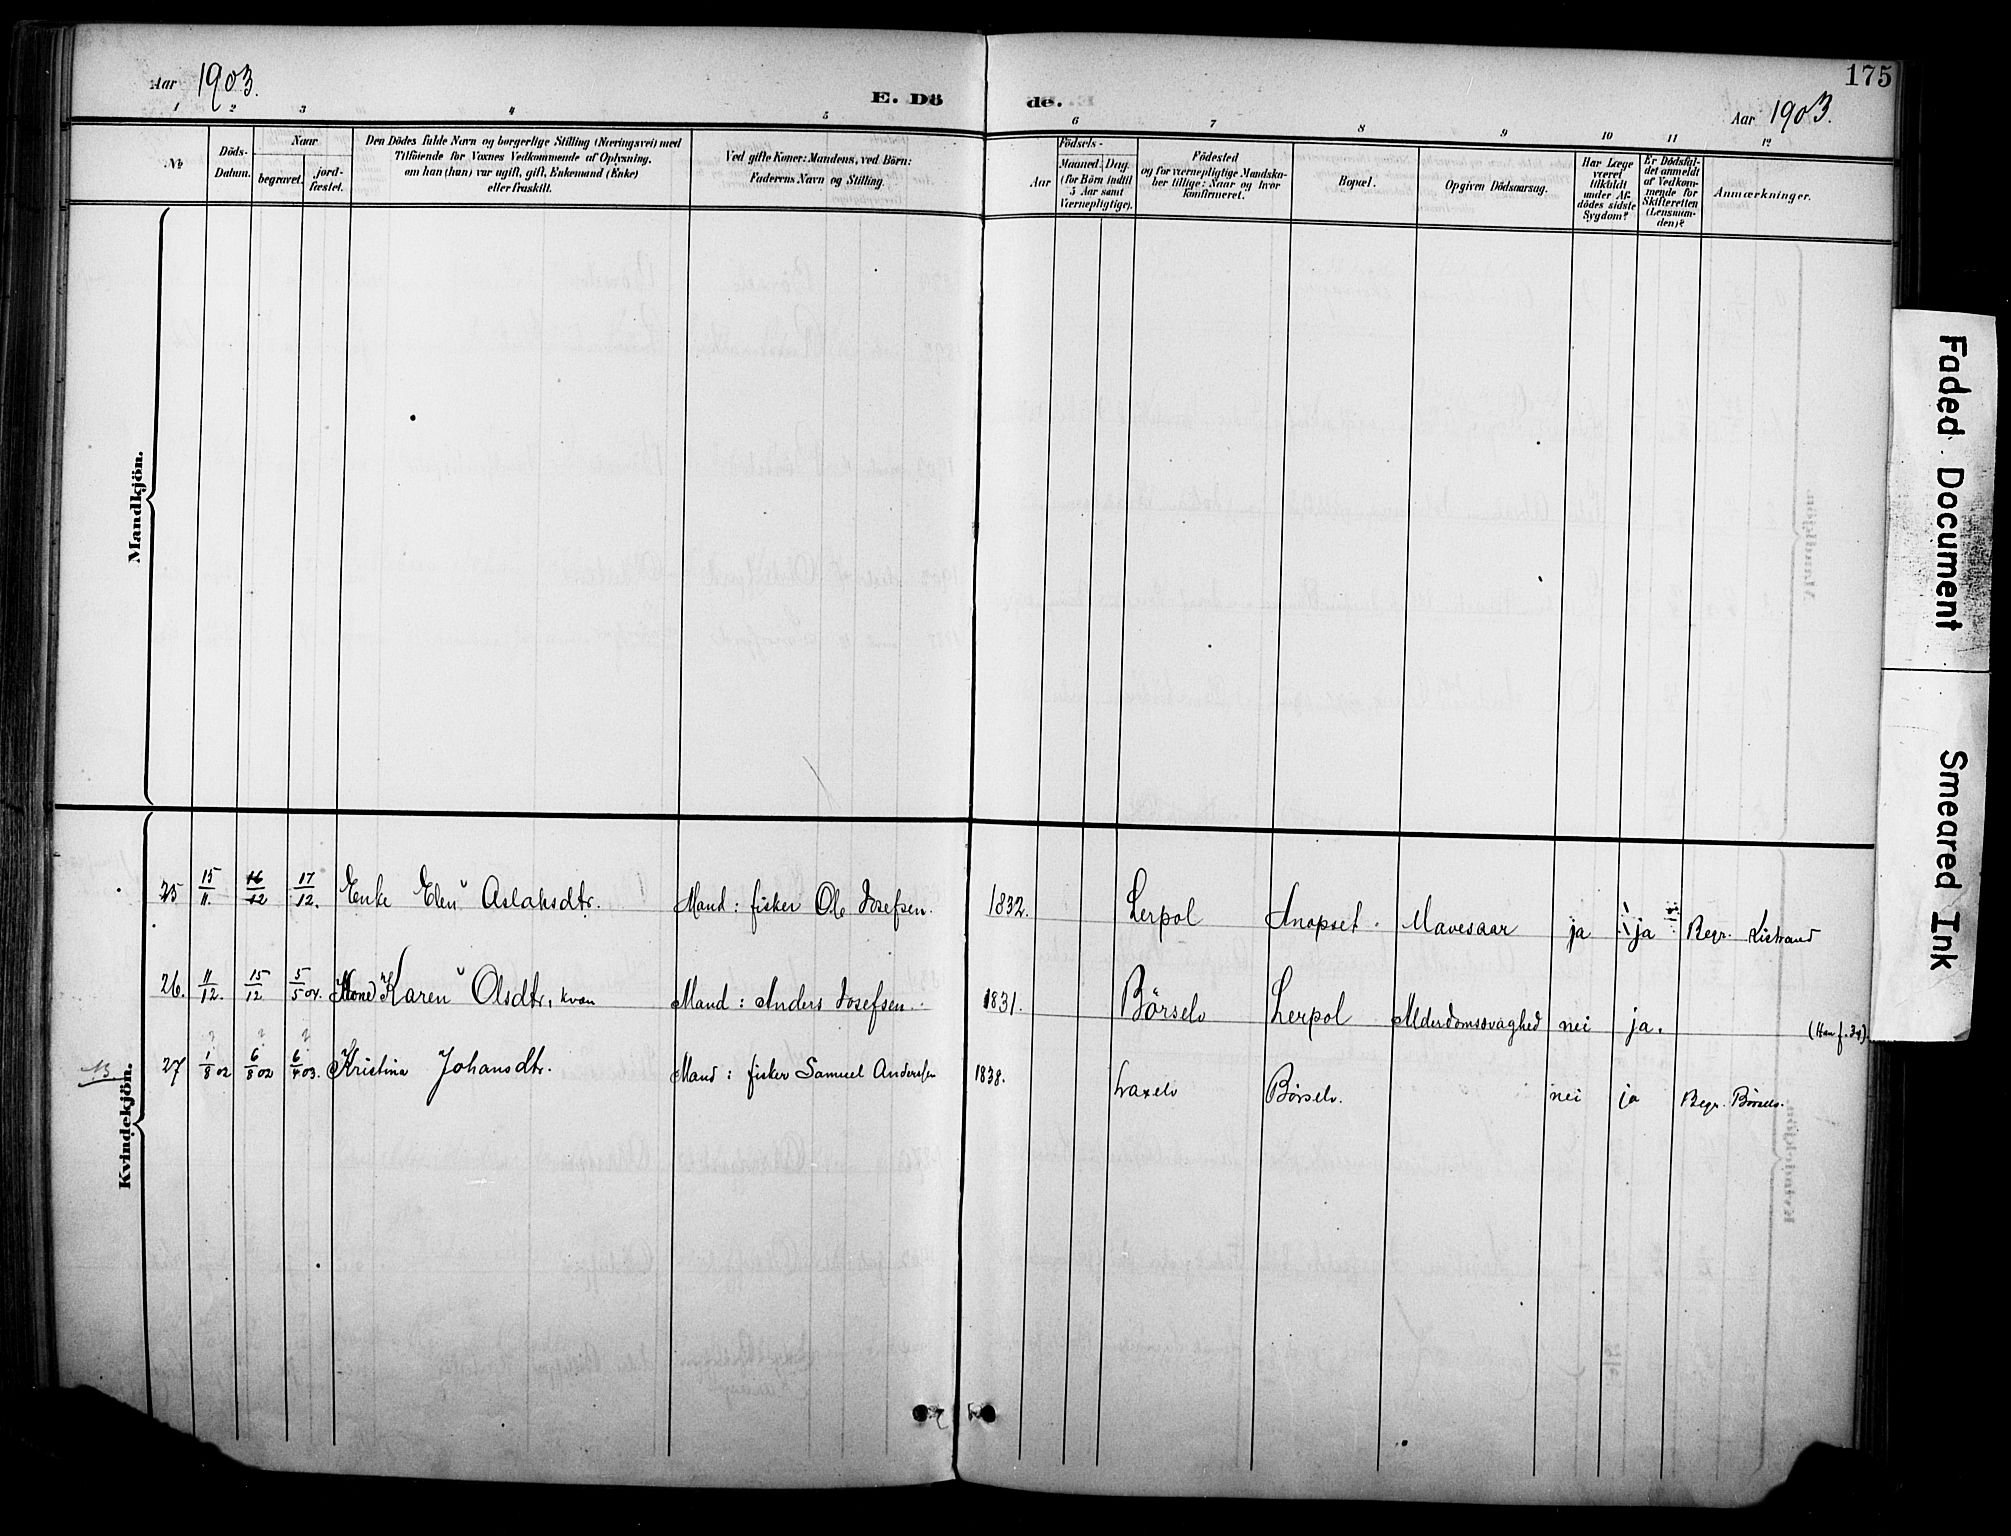 175
Aar 1903.
E. Dö de.
Aar 1903.
1 2 3 4 5 6 7 8 9 10 11 12
No
Döds-
Datum.
Naar
begravet.
jord-
fæstet.
Den Dödes fulde Navn og borgerlige Stilling (Næringsvei) med
Tilföiende for Voxnes Vedkommende af Oplysning,
om han (hun) var ugift, gift, Enkemand (Enke)
eller fraskilt.
Ved gifte Koner: Mandens, ved Börn:
Faderens Navn og Stilling.
Födsels-
Aar
Maaned. Dag.
(for Börn indtil
5 Aar samt
Værnepligtige).
Födested
og for værnepligtige Mandska-
ber tillige: Naar og hvor
konfirmeret.
Bopæl.
Opgiven Dödsaarsag.
Har Læge
været
tilkaldt
under Af-
dödes sidste
Sygdom?
Er Dödsfal-
det anmeldt
af Vedkom-
mende for
Skifteretten
(Lensman-
den)?
Anmærkninger.
Mandkjön.
Kvindekjön.
25 15/11. 16/12 17/12. Enke Elen Aslaksdtr. Mand: fisker Ole Josefsen. 1832. Lerpol Mavesaar ja ja Begr. Listrand
26. 11/12. 15/12 5/5 04. Karen Olsdtr, kvæn Mand: Anders Josefsen. 1831. Börselv Lerpol Alderdomssvaghed nei ja. (Han f. 34).
? ? ?
13 27 1/8 02 6/8 02 6/4 03. Kristina Johansdtr. Mand: fisker Samuel Anderssen 1838. Laxelv Börselv. nei ja Begr. Börselv.
Faded Document
Smeared Ink